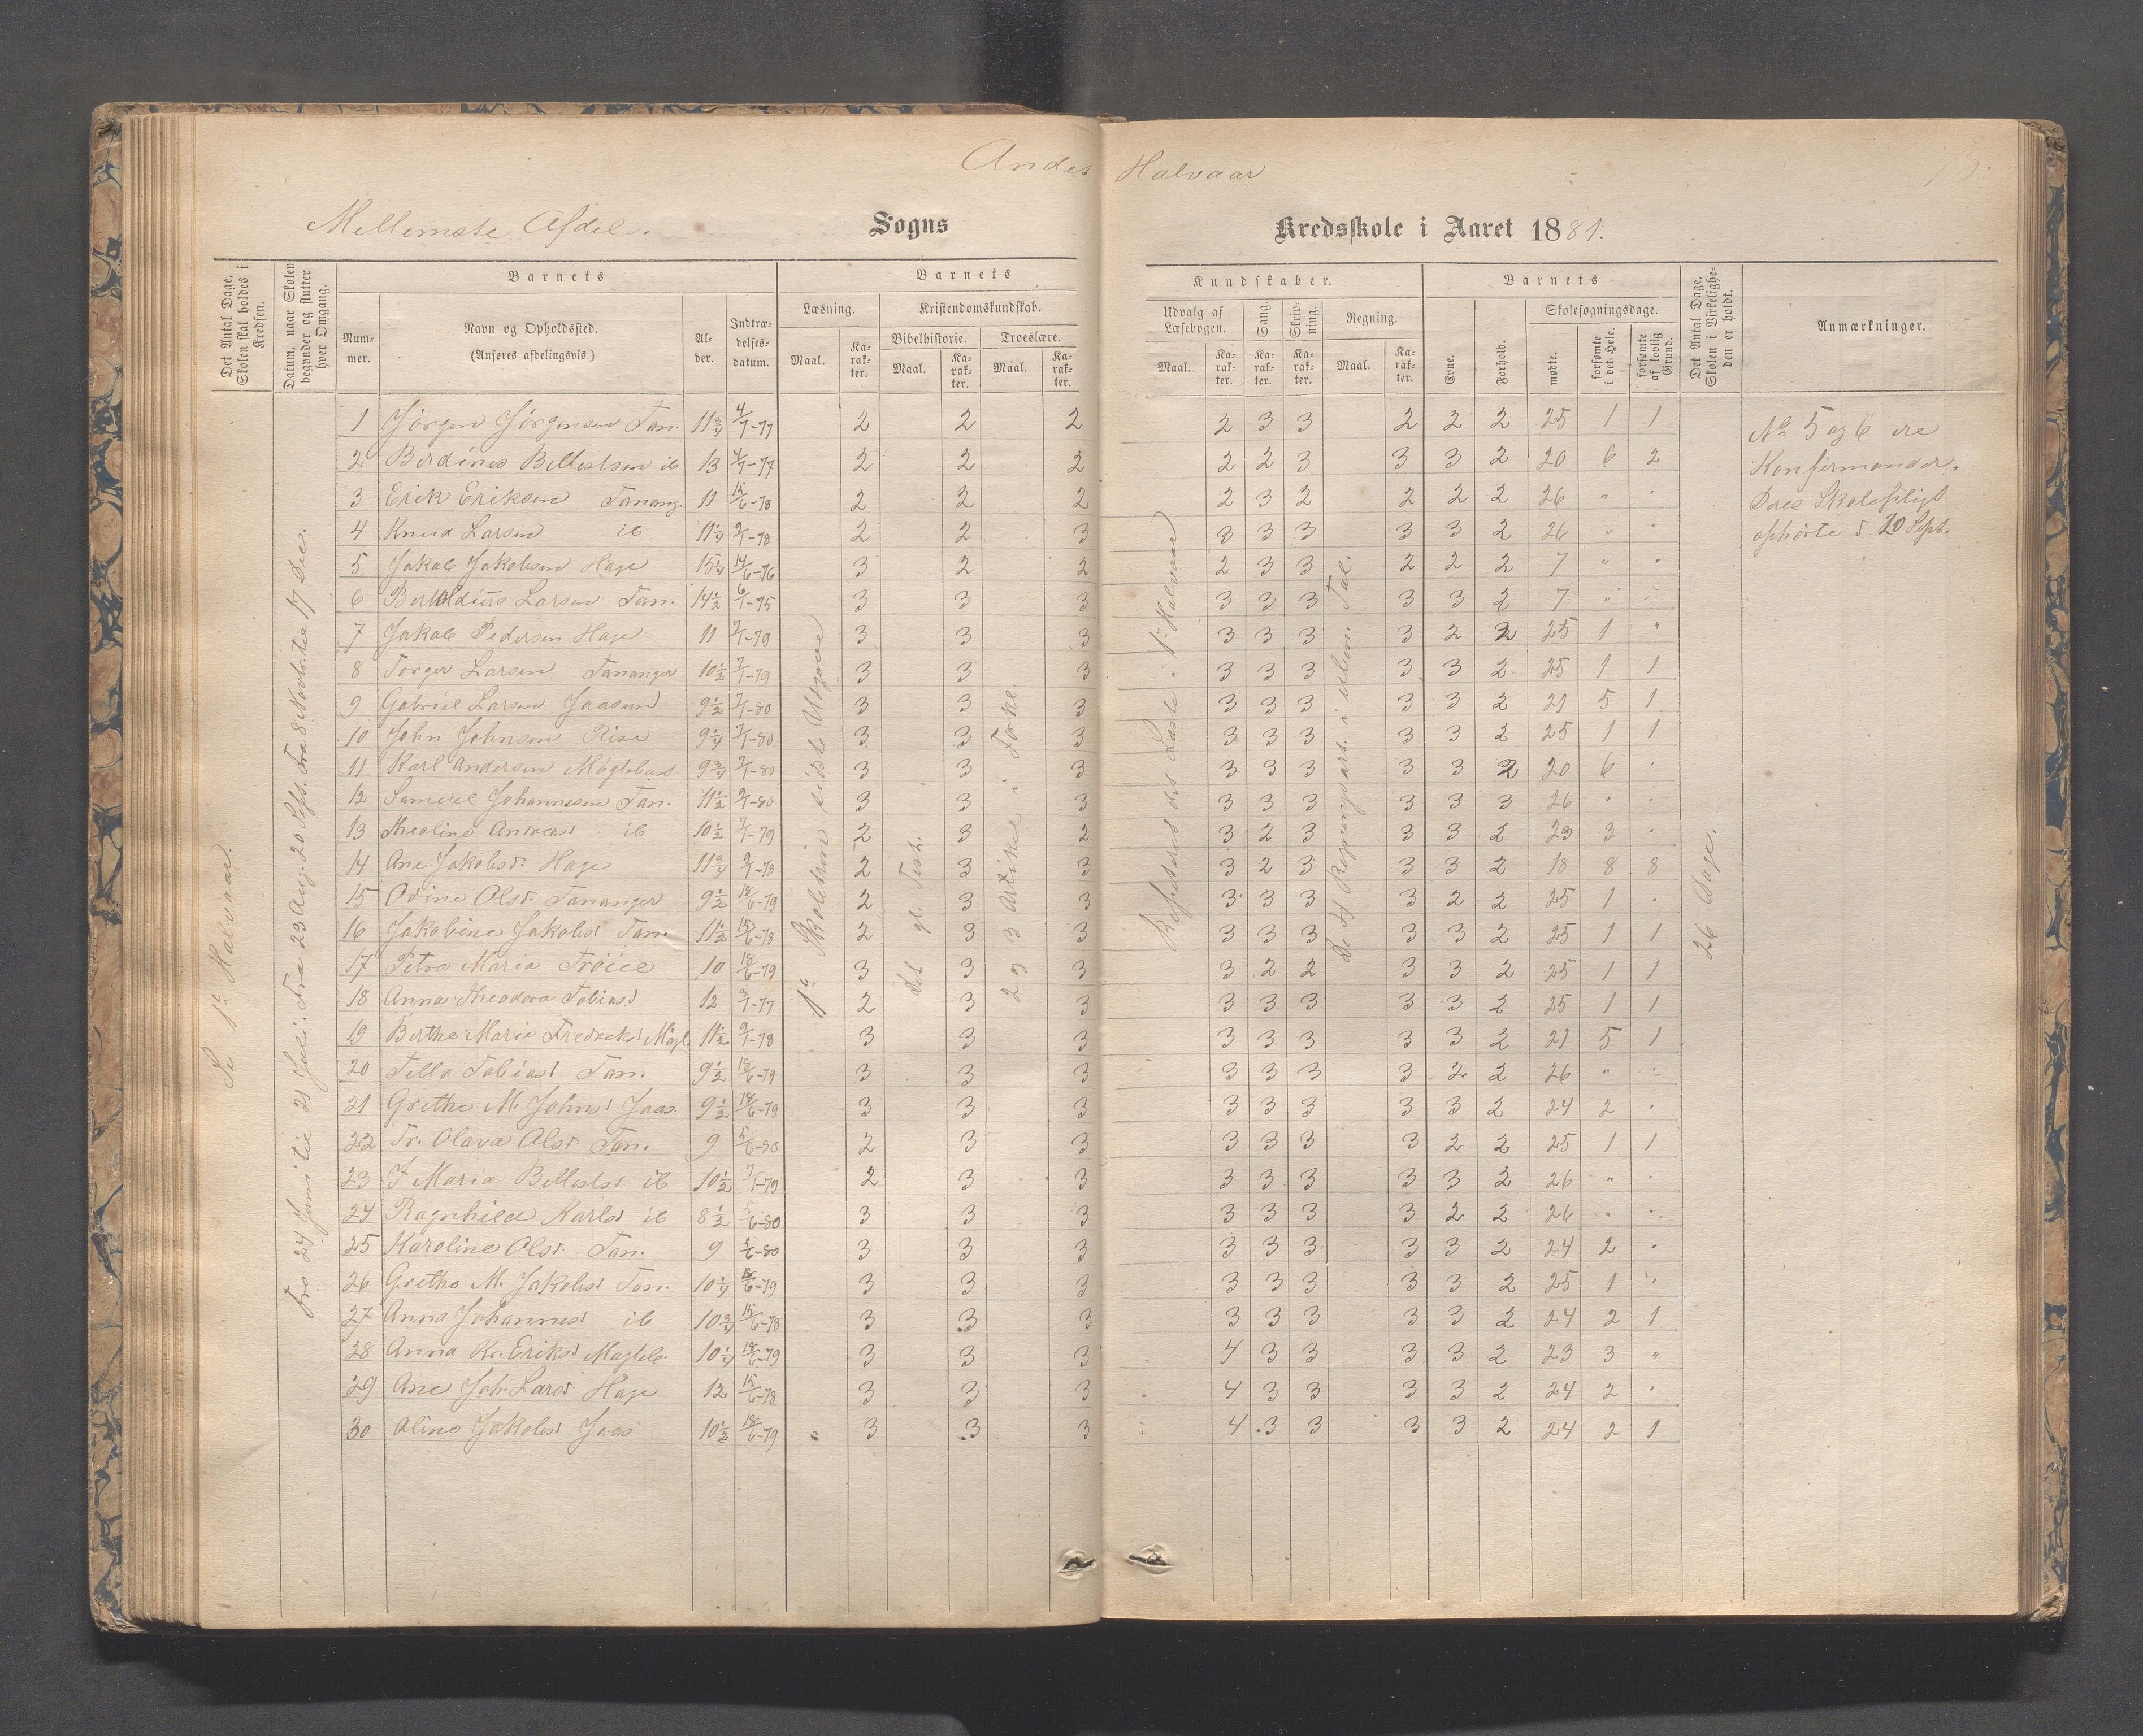 Andet Halvaar
Mellemste Afdel. Sogns Kredsskole i Aaret 1881.
Det Antal Dage, Skolen skal holdes i Kredsen.
Datum, naar Skolen begynder og slutter hver Omgang.
Barnets
Num-mer.
Navn og Opholdssted.
(Anføres afdelingsvis.)
Al-der.
Indtræ-delses-datum.
Barnets
Læsning.
Maal. Ka-rak-ter.
Kristendomskundskab.
Bibelhistorie. Troeslære.
Maal. Ka-rak-ter. Maal. Ka-rak-ter.
Kundskaber.
Udvalg af Læsebogen.
Maal. Ka-rak-ter.
Sang. Ka-rak-ter.
Skriv-ning. Ka-rak-ter.
Regning.
Maal. Ka-rak-ter.
Barnets
Evne. Forhold.
Skolesøgningsdage.
mødte. forsømte i det Hele. forsømte af lovlig Grund.
Det Antal Dage, Skolen i Virkelighe-den er holdt.
Anmærkninger.
Se 1ste Halvaar.
Fra 24 Juni til 21 Juli. Fra 23 Aug. 20 Sept. Fra 8 Novbr. til 17 Dec.
1 Jørgen Jørgensen Tan. 11 3/4 4/7-77 2 2 2 2 3 3 2 2 2 25 1 1
2 Berdines Bellestsen ib 13 4/7-77 2 2 2 2 2 3 3 3 2 20 6 2
3 Erik Eriksen Tanang. 11 15/6-78 2 2 2 2 3 2 2 2 2 26 " "
4 Knud Larsen ib 11 1/4 2/1-78 2 2 3 3 3 3 3 3 2 26 " "
5 Jakob Jakobsen Hage 15 1/4 14/6-76 3 2 2 2 3 3 2 2 2 7 " "
6 Larsen Tan. 14 1/2 6/1-75 3 3 3 3 3 3 3 3 2 7 " "
7 Jakob Pedersen Hage 11 7/1-79 3 3 3 3 3 3 3 2 2 25 1 "
8 Torger Larsen Tananger 10 1/2 7/1-79 3 3 3 3 3 3 3 3 2 25 1 1
9 Gabriel Larsen Jaasund 9 1/2 7/1-80 3 3 3 3 3 3 3 3 2 21 5 1
10 John Johnsen Risa 9 1/4 7/1-80 3 3 3 3 3 3 3 3 2 25 1 1
11 Karl Andersen Møgleb 9 3/4 7/1-80 3 3 3 3 3 3 3 3 2 20 6 "
12 Samuel Johannesen Tan. 11 1/2 2/1-80 3 3 3 3 3 3 3 3 3 26 " "
13 Theoline Andreasd ib 10 1/2 7/1-79 2 3 2 3 2 3 3 3 2 23 3 "
14 Ane Jakobsd. Hage 11 3/4 2/1-78 2 3 3 3 2 3 3 3 2 18 8 8
15 Odine Olsd. Tananger 9 1/2 18/6-79 2 3 3 3 3 3 3 2 2 25 1 "
16 Jakobine Jakobsd Tan. 11 1/2 15/6-78 2 3 3 3 3 3 3 3 2 25 1 1
17 Petra Maria Trøiel 10 18/6-79 3 3 3 3 2 2 3 3 2 25 1 1
18 Anna Theodora Tobiasd 12 2/1-77 2 3 3 3 3 3 3 3 2 25 1 1
19 Berthe Marie Fredriksd Møgl. 11 1/2 2/1-78 3 3 3 3 3 3 3 3 2 21 5 1
20 Tella Tobiasd Tan. 9 1/2 18/6-79 3 3 3 3 3 3 3 2 2 26 " "
21 Grethe M. Johnsd Jaas. 9 1/2 18/6-79 3 3 3 3 3 3 3 3 2 24 2 "
22 Tr. Olava Olsd Tan. 9 5/6-80 2 3 3 3 3 3 3 2 2 25 1 1
23 J Maria Bellestsd ib 10 1/2 7/1-79 2 3 3 3 3 3 3 3 2 26 " "
24 Ragnhild Karlsd ib 8 1/2 6-80 3 3 3 3 3 3 3 2 2 26 " "
25 Karoline Olsd. Tan. 9 5/6-80 3 3 3 3 3 3 3 3 2 24 2 "
26 Grethe M. Jakobsd Tan. 10 1/4 18/6-79 3 3 3 3 3 3 3 3 2 25 1 "
27 Anna Johannesd ib 10 3/4 15/6-78 3 3 3 3 3 3 3 3 2 24 2 1
28 Anna K. Eriksd Møgleb. 10 1/4 18/6-79 3 3 3 4 3 3 3 3 2 23 3 "
29 Ane Joh. Larsd Hage 12 15/6-78 3 3 3 4 3 3 3 3 2 24 2 "
30 Aline Jakobsd Jaas 10 1/2 18/6-79 3 3 3 4 3 3 3 3 2 24 2 1
1ste Skoletrin sidste Udgave
Det gl. Test.
2 og 3 Artikel i Forkl.
Repeteres det Læste i 1ste Halvaar
De 4 Regningsart. i uben. Tal.
26 Dage.
No 5 og 6 ere
Konfirmander.
Deres Skolepligt
ophørte d. 20 Sept.